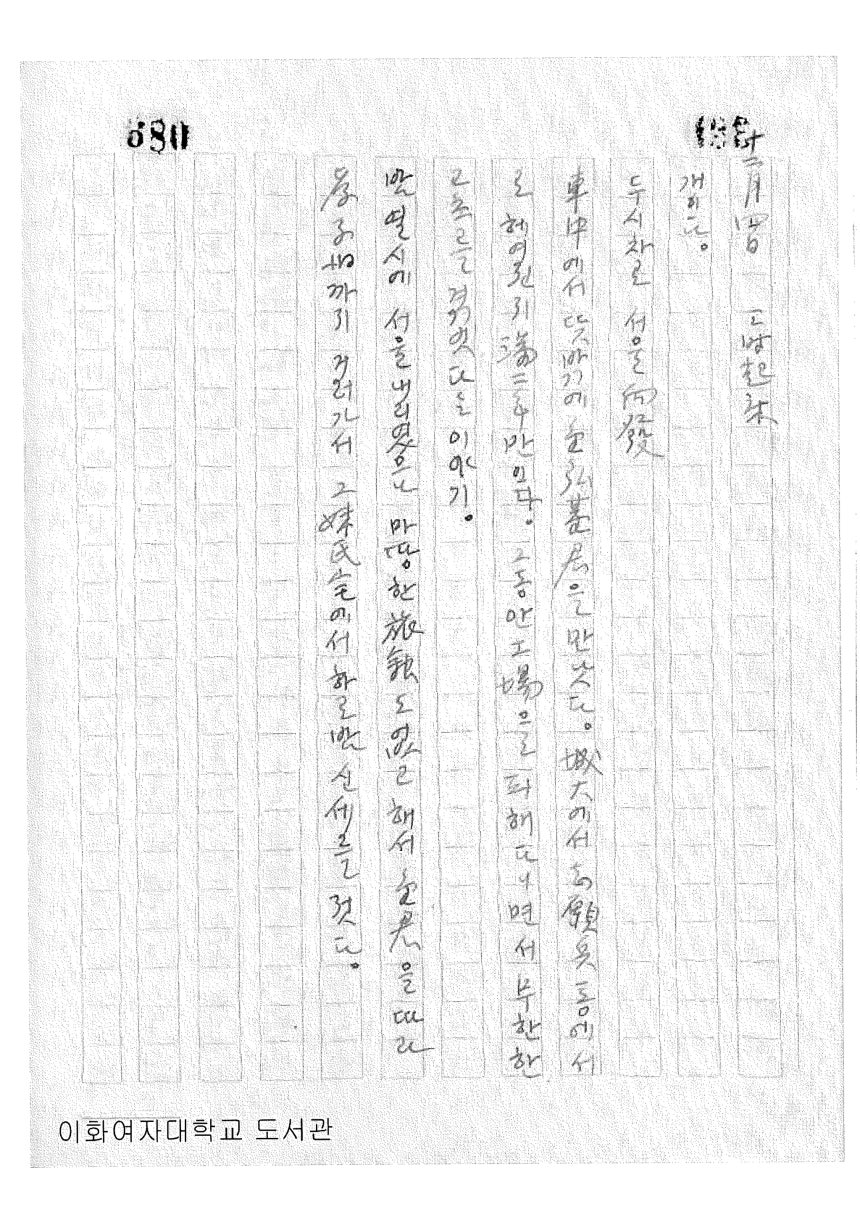 十二月 四日 고방起床
개이다。
두시차로 서울 向發
車中에서 뜻밖기에 金弘基君을 만낫다。 城大에서 志願兵 통에서
로 헤여진 지 滿三年만이다。 그동안 工場을 피해 다니면서 무한한
고초를 겪엇다는 이야기。
밤 열시에 서울 내리엿으나 마땅한 旅館도 없고 해서 金君을 따라
孝子洞까지 거러가서 그 妹氏宅에서 하로밤 신세를 젓다。
580
이화여자대학교 도서관